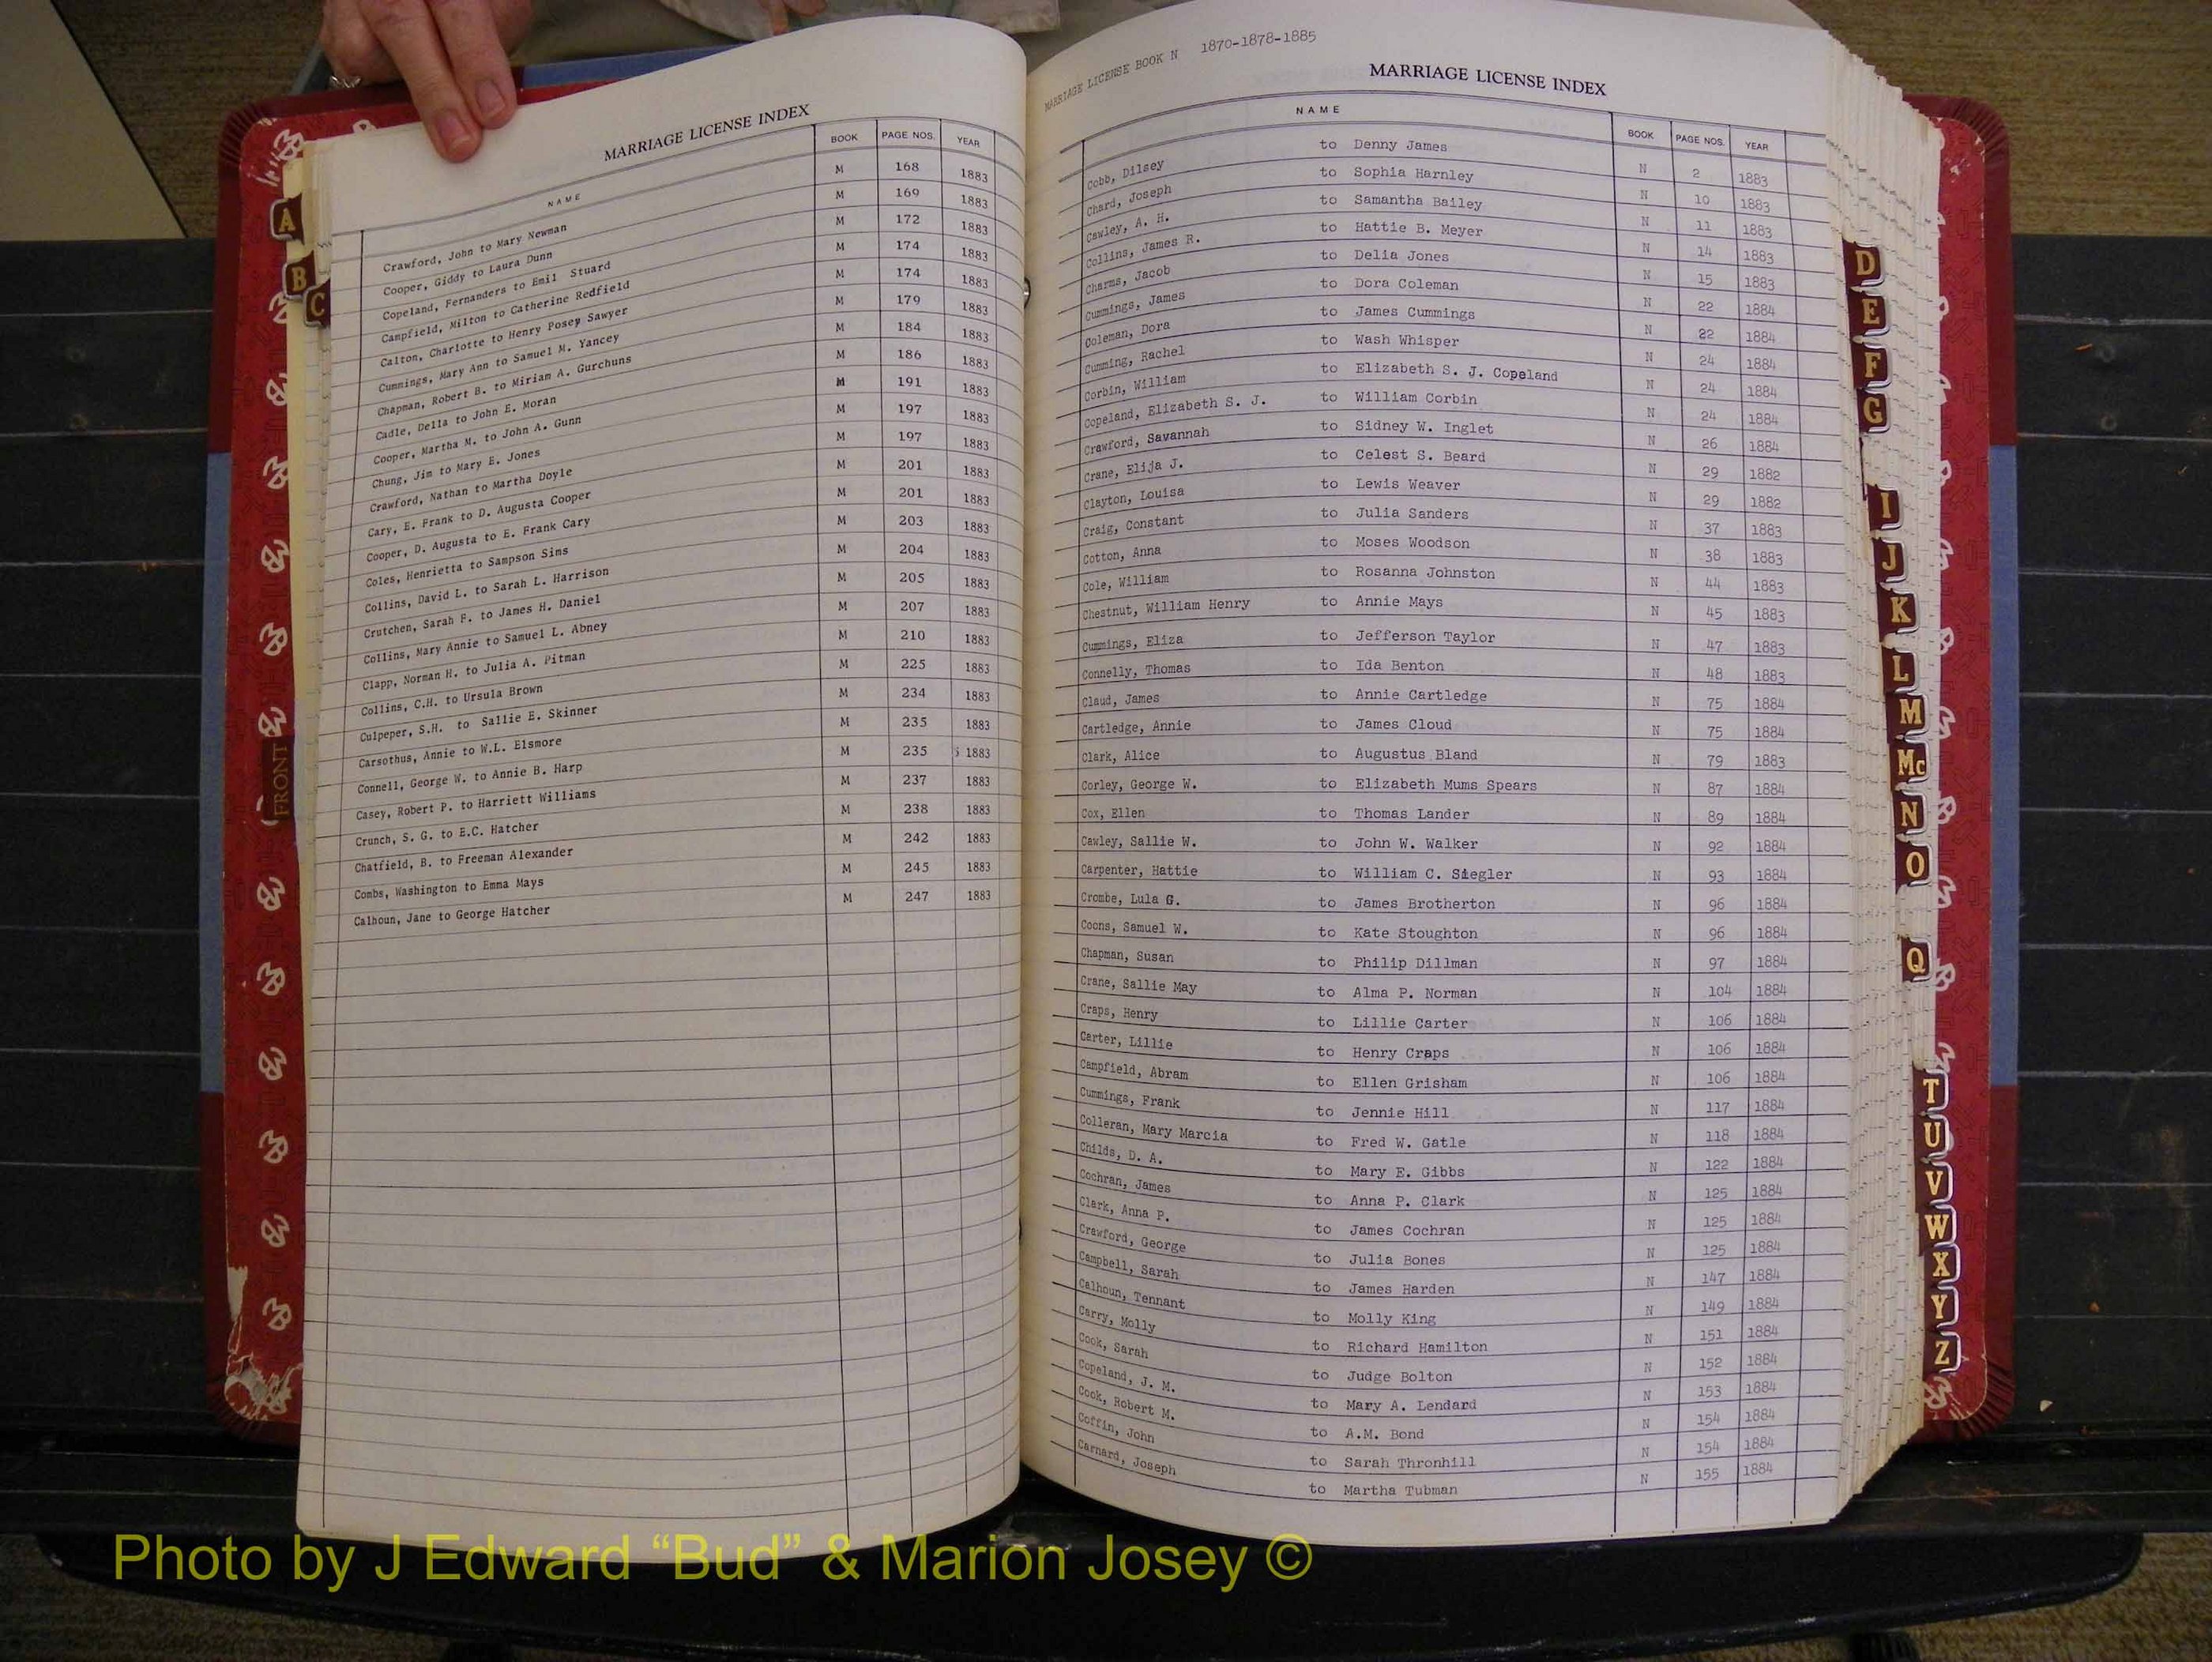 MARRIAGE LICENSE INDEX
NAME BOOK PAGE NOS. YEAR
Crawford, John to Mary Newman M 168 1883
Cooper, Giddy to Laura Dunn M 169 1883
Copeland, Fernanders to Emil Stuard M 172 1883
Campfield, Milton to Catherine Redfield M 174 1883
Calton, Charlotte to Henry Posey Sawyer M 174 1883
Cummings, Mary Ann to Samuel M. Yancey M 179 1883
Chapman, Robert B. to Miriam A. Gurchuns M 184 1883
Cadle, Della to John E. Moran M 186 1883
Cooper, Martha M. to John A. Gunn M 191 1883
Chung, Jim to Mary E. Jones M 197 1883
Crawford, Nathan to Martha Doyle M 197 1883
Cary, E. Frank to D. Augusta Cooper M 201 1883
Cooper, D. Augusta to E. Frank Cary M 201 1883
Coles, Henrietta to Sampson Sims M 203 1883
Collins, David L. to Sarah L. Harrison M 204 1883
Crutchen, Sarah F. to James H. Daniel M 205 1883
Collins, Mary Annie to Samuel L. Abney M 207 1883
Clapp, Norman H. to Julia A. Pitman M 210 1883
Collins, C.H. to Ursula Brown M 225 1883
Culpeper, S.H. to Sallie E. Skinner M 234 1883
Carsothus, Annie to W.L. Elsmore M 235 1883
Connell, George W. to Annie B. Harp M 235 1883
Casey, Robert P. to Harriett Williams M 237 1883
Crunch, S. G. to E.C. Hatcher M 238 1883
Chatfield, B. to Freeman Alexander M 242 1883
Combs, Washington to Emma Mays M 245 1883
Calhoun, Jane to George Hatcher M 247 1883
A
B
C
FRONT
MARRIAGE LICENSE BOOK N 1870-1878-1885
MARRIAGE LICENSE INDEX
NAME BOOK PAGE NOS. YEAR
Cobb, Dilsey to Denny James N 2 1883
Chard, Joseph to Sophia Harnley N 10 1883
Cawley, A. H. to Samantha Bailey N 11 1883
Collins, James R. to Hattie B. Meyer N 14 1883
Charms, Jacob to Delia Jones N 15 1883
Cummings, James to Dora Coleman N 22 1884
Coleman, Dora to James Cummings N 22 1884
Cumming, Rachel to Wash Whisper N 24 1884
Corbin, William to Elizabeth S. J. Copeland N 24 1884
Copeland, Elizabeth S. J. to William Corbin N 24 1884
Crawford, Savannah to Sidney W. Inglet N 26 1884
Crane, Elija J. to Celest S. Beard N 29 1882
Clayton, Louisa to Lewis Weaver N 29 1882
Craig, Constant to Julia Sanders N 37 1883
Cotton, Anna to Moses Woodson N 38 1883
Cole, William to Rosanna Johnston N 44 1883
Chestnut, William Henry to Annie Mays N 45 1883
Cummings, Eliza to Jefferson Taylor N 47 1883
Connelly, Thomas to Ida Benton N 48 1883
Claud, James to Annie Cartledge N 75 1884
Cartledge, Annie to James Cloud N 75 1884
Clark, Alice to Augustus Bland N 79 1883
Corley, George W. to Elizabeth Mums Spears N 87 1884
Cox, Ellen to Thomas Lander N 89 1884
Cawley, Sallie W. to John W. Walker N 92 1884
Carpenter, Hattie to William C. Siegler N 93 1884
Crombe, Lula G. to James Brotherton N 96 1884
Coons, Samuel W. to Kate Stoughton N 96 1884
Chapman, Susan to Philip Dillman N 97 1884
Crane, Sallie May to Alma P. Norman N 104 1884
Craps, Henry to Lillie Carter N 106 1884
Carter, Lillie to Henry Craps N 106 1884
Campfield, Abram to Ellen Grisham N 106 1884
Cummings, Frank to Jennie Hill N 117 1884
Colleran, Mary Marcia to Fred W. Gatle N 118 1884
Childs, D. A. to Mary E. Gibbs N 122 1884
Cochran, James to Anna P. Clark N 125 1884
Clark, Anna P. to James Cochran N 125 1884
Crawford, George to Julia Bones N 125 1884
Campbell, Sarah to James Harden N 147 1884
Calhoun, Tennant to Molly King N 149 1884
Carry, Molly to Richard Hamilton N 151 1884
Cook, Sarah to Judge Bolton N 152 1884
Copeland, J. M. to Mary A. Lendard N 153 1884
Cook, Robert M. to A.M. Bond N 154 1884
Coffin, John to Sarah Thronhill N 154 1884
Carnard, Joseph to Martha Tubman N 155 1884
D
E
F
G
I
J
K
L
M
Mc
N
O
Q
T
U
V
W
X
Y
Z
Photo by J Edward “Bud” & Marion Josey ©